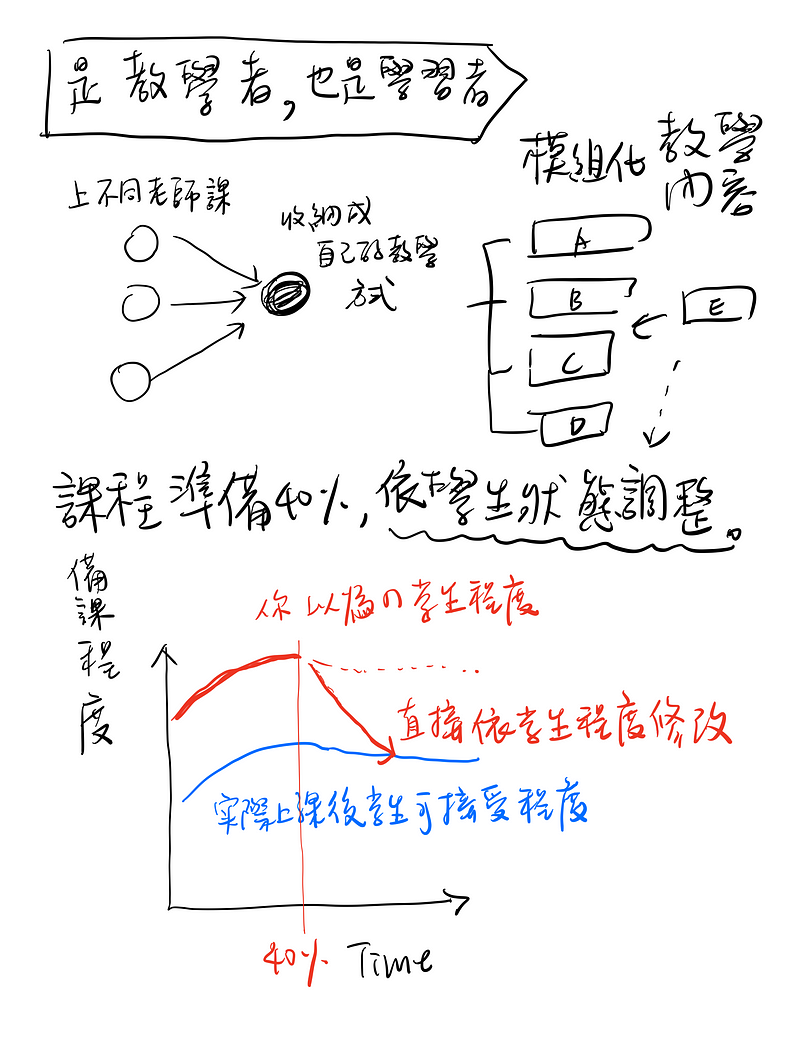 是教學者，也是學習者
上不同老師課
收納成
自己的教學
方式
模組化教學
內容
A
B
C
D
E
課程準備40%，依學生狀態調整。
備課程度
你以為の学生程度
直接依学生程度修改
実際上課後学生可接受程度
40% Time